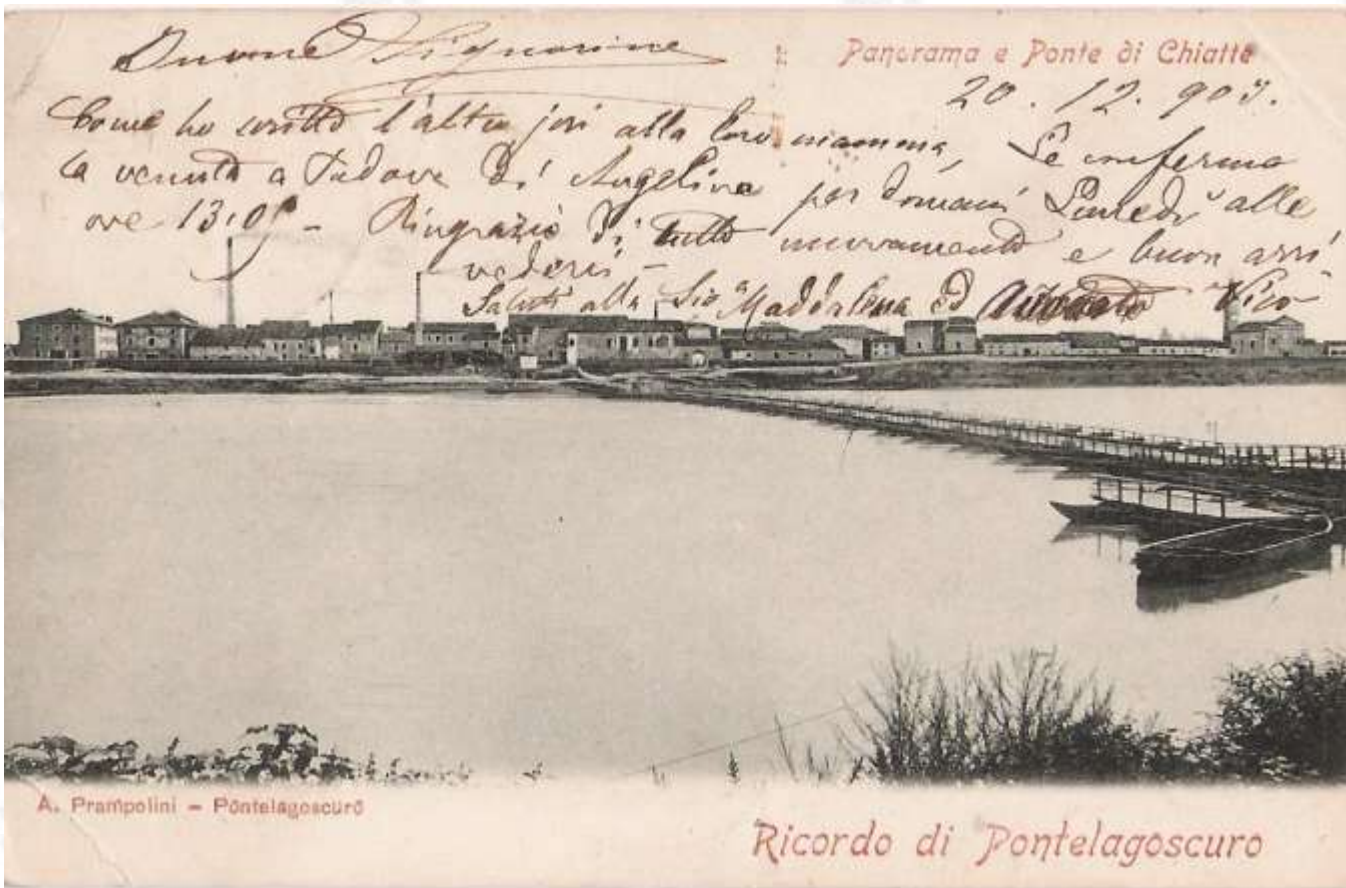 Buone Signorine
Panorama e Ponte di Chiatte
20. 12. 903.
Come ho scritto l'altro jeri alla loro mamma, Le conferma
la venuta a Padova di Angelina per domani Lunedì alle
ore 13:05 - Ringrazio di tutto nuovamente e buon arri
vederci -
Saluti alla Sig.a Maddalena ed Vico
A. Prampolini - Pontelagoscuro
Ricordo di Pontelagoscuro